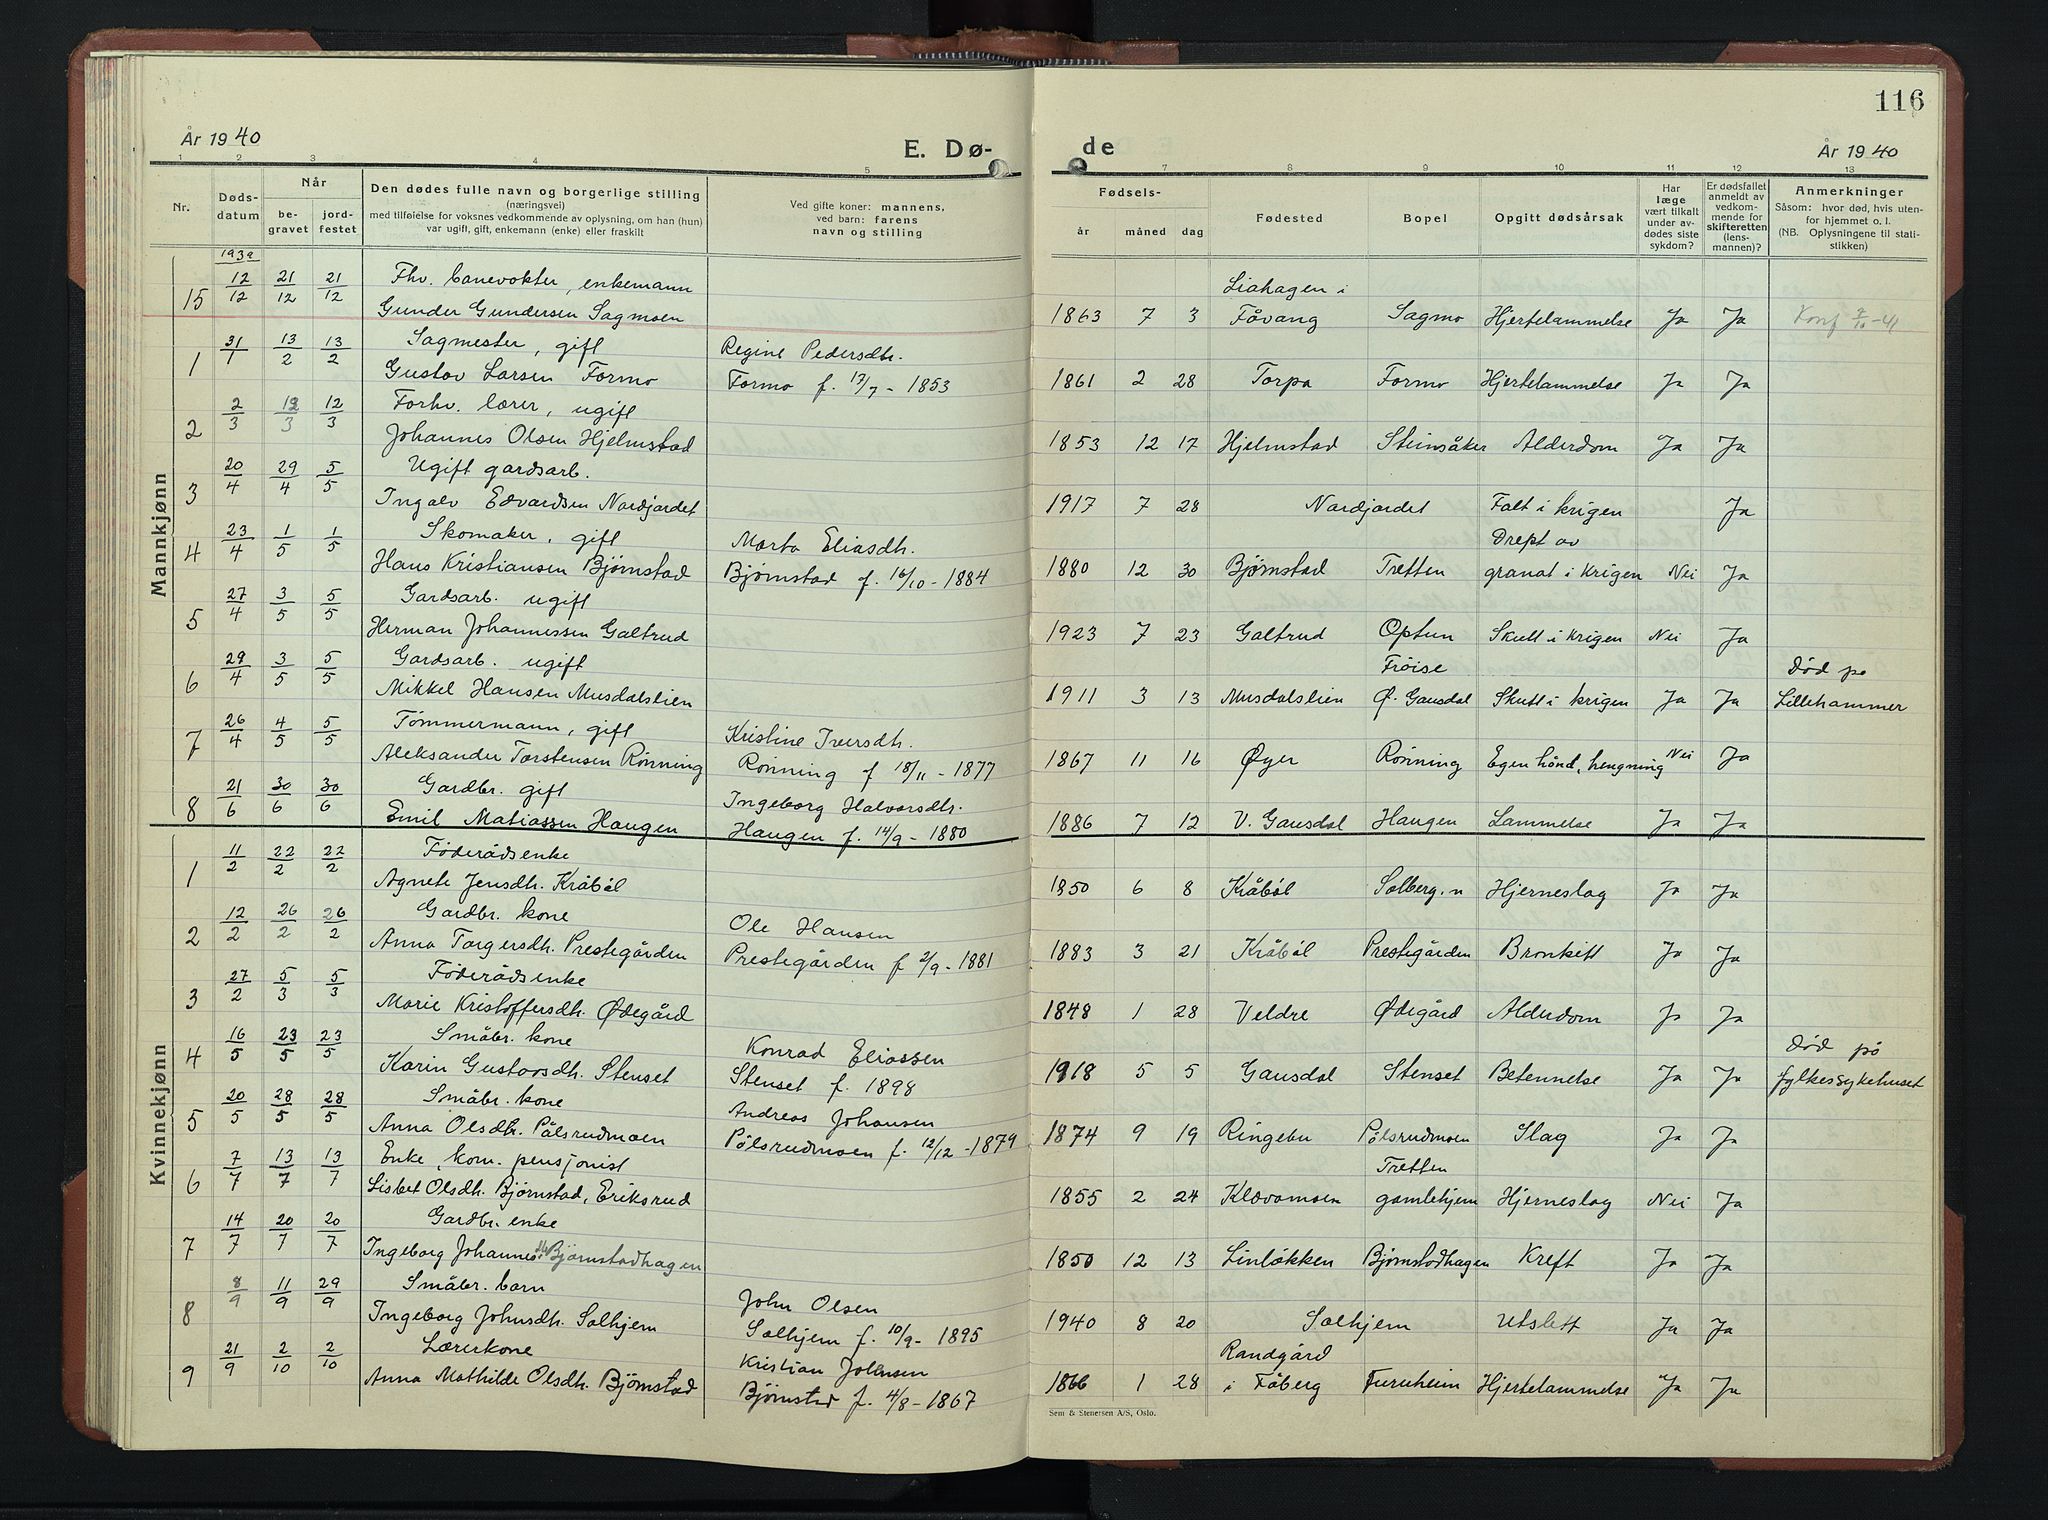 116
År 1940
E. Dø-
de
År 1940
1 2 3 4 5 7 8 9 10 11 12 13
Nr.
Døds-
datum
Når
be-
gravet
jord-
festet
Den dødes fulle navn og borgerlige stilling
(næringsvei)
med tilføielse for voksnes vedkommende av oplysning, om han (hun)
var ugift, gift, enkemann (enke) eller fraskilt
Ved gifte koner: mannens,
ved barn: farens
navn og stilling
Fødsels-
år måned dag
Fødested
Bopel
Opgitt dødsårsak
Har
læge
vært tilkalt
under av-
dødes siste
sykdom?
Er dødsfallet
anmeldt av
vedkom-
mende for
skifteretten
(lens-
mannen)?
Anmerkninger
Såsom: hvor død, hvis uten-
for hjemmet o. l.
(NB. Oplysningene til stati-
stikken)
Mannkjønn
1939
12/12 21/12 21/12 Fhv. banevokter, enkemann Liahagen i
15 Gunder Gundersen Sagmoen 1863 7 3 Fåvang Sagmo Hjertelammelse Ja Ja Konf 2/10-41
31/1 13/2 13/2 Sagmester, gift Regine Pedersdtr.
1 Gustav Larsen Formo Formo f. 17/7-1853 1861 2 28 Torpa Formo Hjertelammelse Ja Ja
2/3 12/3 12/3 Forhv. lærer, ugift
2 Johannes Olsen Hjelmstad 1853 12 17 Hjelmstad Steinsåker Alderdom Ja Ja
20/4 29/4 5/5 Ugift gardsarb.
3 Ingalv Edvardsen Nordjordet 1917 7 28 Nordjordet Falt i krigen Ja
23/4 1/5 1/5 Skomaker, gift Marta Eliasdtr. Drept av
4 Hans Kristiansen Bjørnstad Bjørnstad f. 16/10-1884 1880 12 30 Bjørnstad Tretten granat i krigen Nei Ja
27/4 3/5 5/5 Gardsarb. ugift
5 Herman Johannessen Galtrud 1923 7 23 Galtrud Optun Skutt i krigen Nei Ja
29/4 3/5 5/5 Gardsarb. ugift Frøise Død på
6 Mikkel Hansen Musdalslien 1911 3 13 Musdalslien Ø. Gausdal Skutt i krigen Ja Ja Lillehammer
26/4 4/5 5/5 Tømmermann, gift Kristine Iversdtr.
7 Aleksander Torstensen Rønning Rønning f 18/11-1877 1867 11 16 Øyer Rønning Egen hånd, hengning Nei Ja
21/6 30/6 30/6 Gardbr. gift Ingeborg Halvorsdtr.
8 Emil Matiassen Haugen Haugen f. 14/9-1880 1886 7 12 V. Gausdal Haugen Lammelse Ja Ja
Kvinnekjønn
11/2 22/2 22/2 Føderådsenke
1 Agnete Jensdtr. Kråbøl 1850 6 8 Kråbøl Solberg. n Hjerneslag Ja Ja
12/2 26/2 26/2 Gardbr. kone Ole Hansen
2 Anna Torgersdtr. Prestegården Prestegården f 2/9-1881 1883 3 21 Kråbøl Prestegården Bronkitt Ja Ja
27/2 5/3 5/3 Føderådsenke
3 Marie Kristoffersdtr. Ødegård 1848 1 28 Veldre Ødegård Alderdom Ja Ja
16/5 23/5 23/5 Småbr. kone Konrad Eliassen Død på
4 Karin Gustavsdtr. Stenset Stenset f. 1898 1918 5 5 Gausdal Stenset Betennelse Ja Ja fylkessykehuset
20/5 28/5 28/5 Småbr. kone Andreas Johansen
5 Anna Olsdtr. Pålsrudmoen Pålsrudmoen f. 12/12-1879 1874 9 19 Ringebu Pålsrudmoen Slag Ja Ja
7/7 13/7 13/7 Enke, kom. pensjonist Tretten
6 Lisbet Olsdtr. Bjørnstad, Eriksrud 1855 2 24 Klåvamoen gamlehjem Hjerneslag Nei Ja
14/7 20/7 20/7 Gardbr. enke
7 Ingeborg Johannesdtr Bjørnstadhagen 1850 12 13 Linløkken Bjørnstadhagen Kreft Ja Ja
8/9 11/9 29/9 Småbr. barn John Olsen
8 Ingeborg Johnsdtr. Solhjem Solhjem f. 10/9-1895 1940 8 20 Solhjem Utslett Ja Ja
21/9 2/10 2/10 Lærerkone Kristian Johnsen Randgård
9 Anna Mathilde Olsdtr. Bjørnstad Bjørnstad f. 4/8-1867 1866 1 28 i Fåberg Furuheim Hjertelammelse Ja Ja
Sem & Stenersen A/S, Oslo.